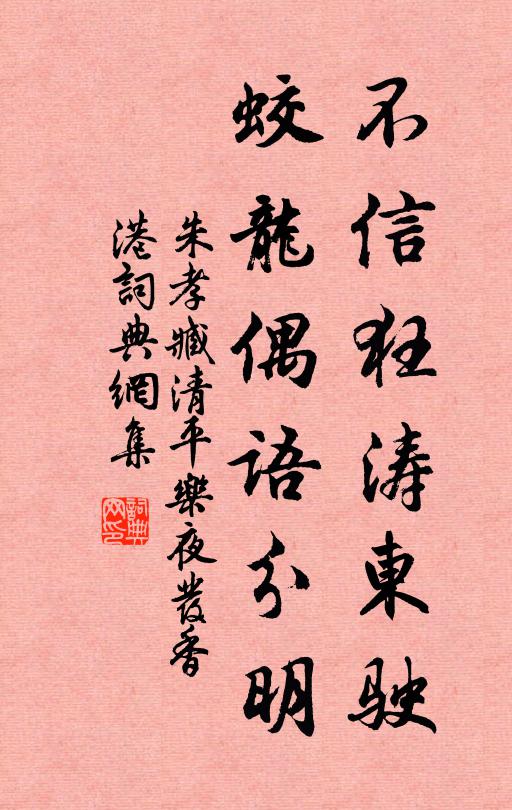 不信狂涛東駛
蛟龍偶語分明
朱孝臧清平樂夜發香
港詞典網集
詞典
网印